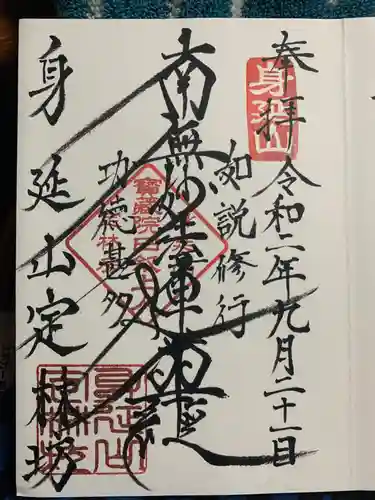 奉拝
令和二年九月二十一日
身延山
如説修行
南無妙法蓮華経
功徳甚多
身延山定林坊